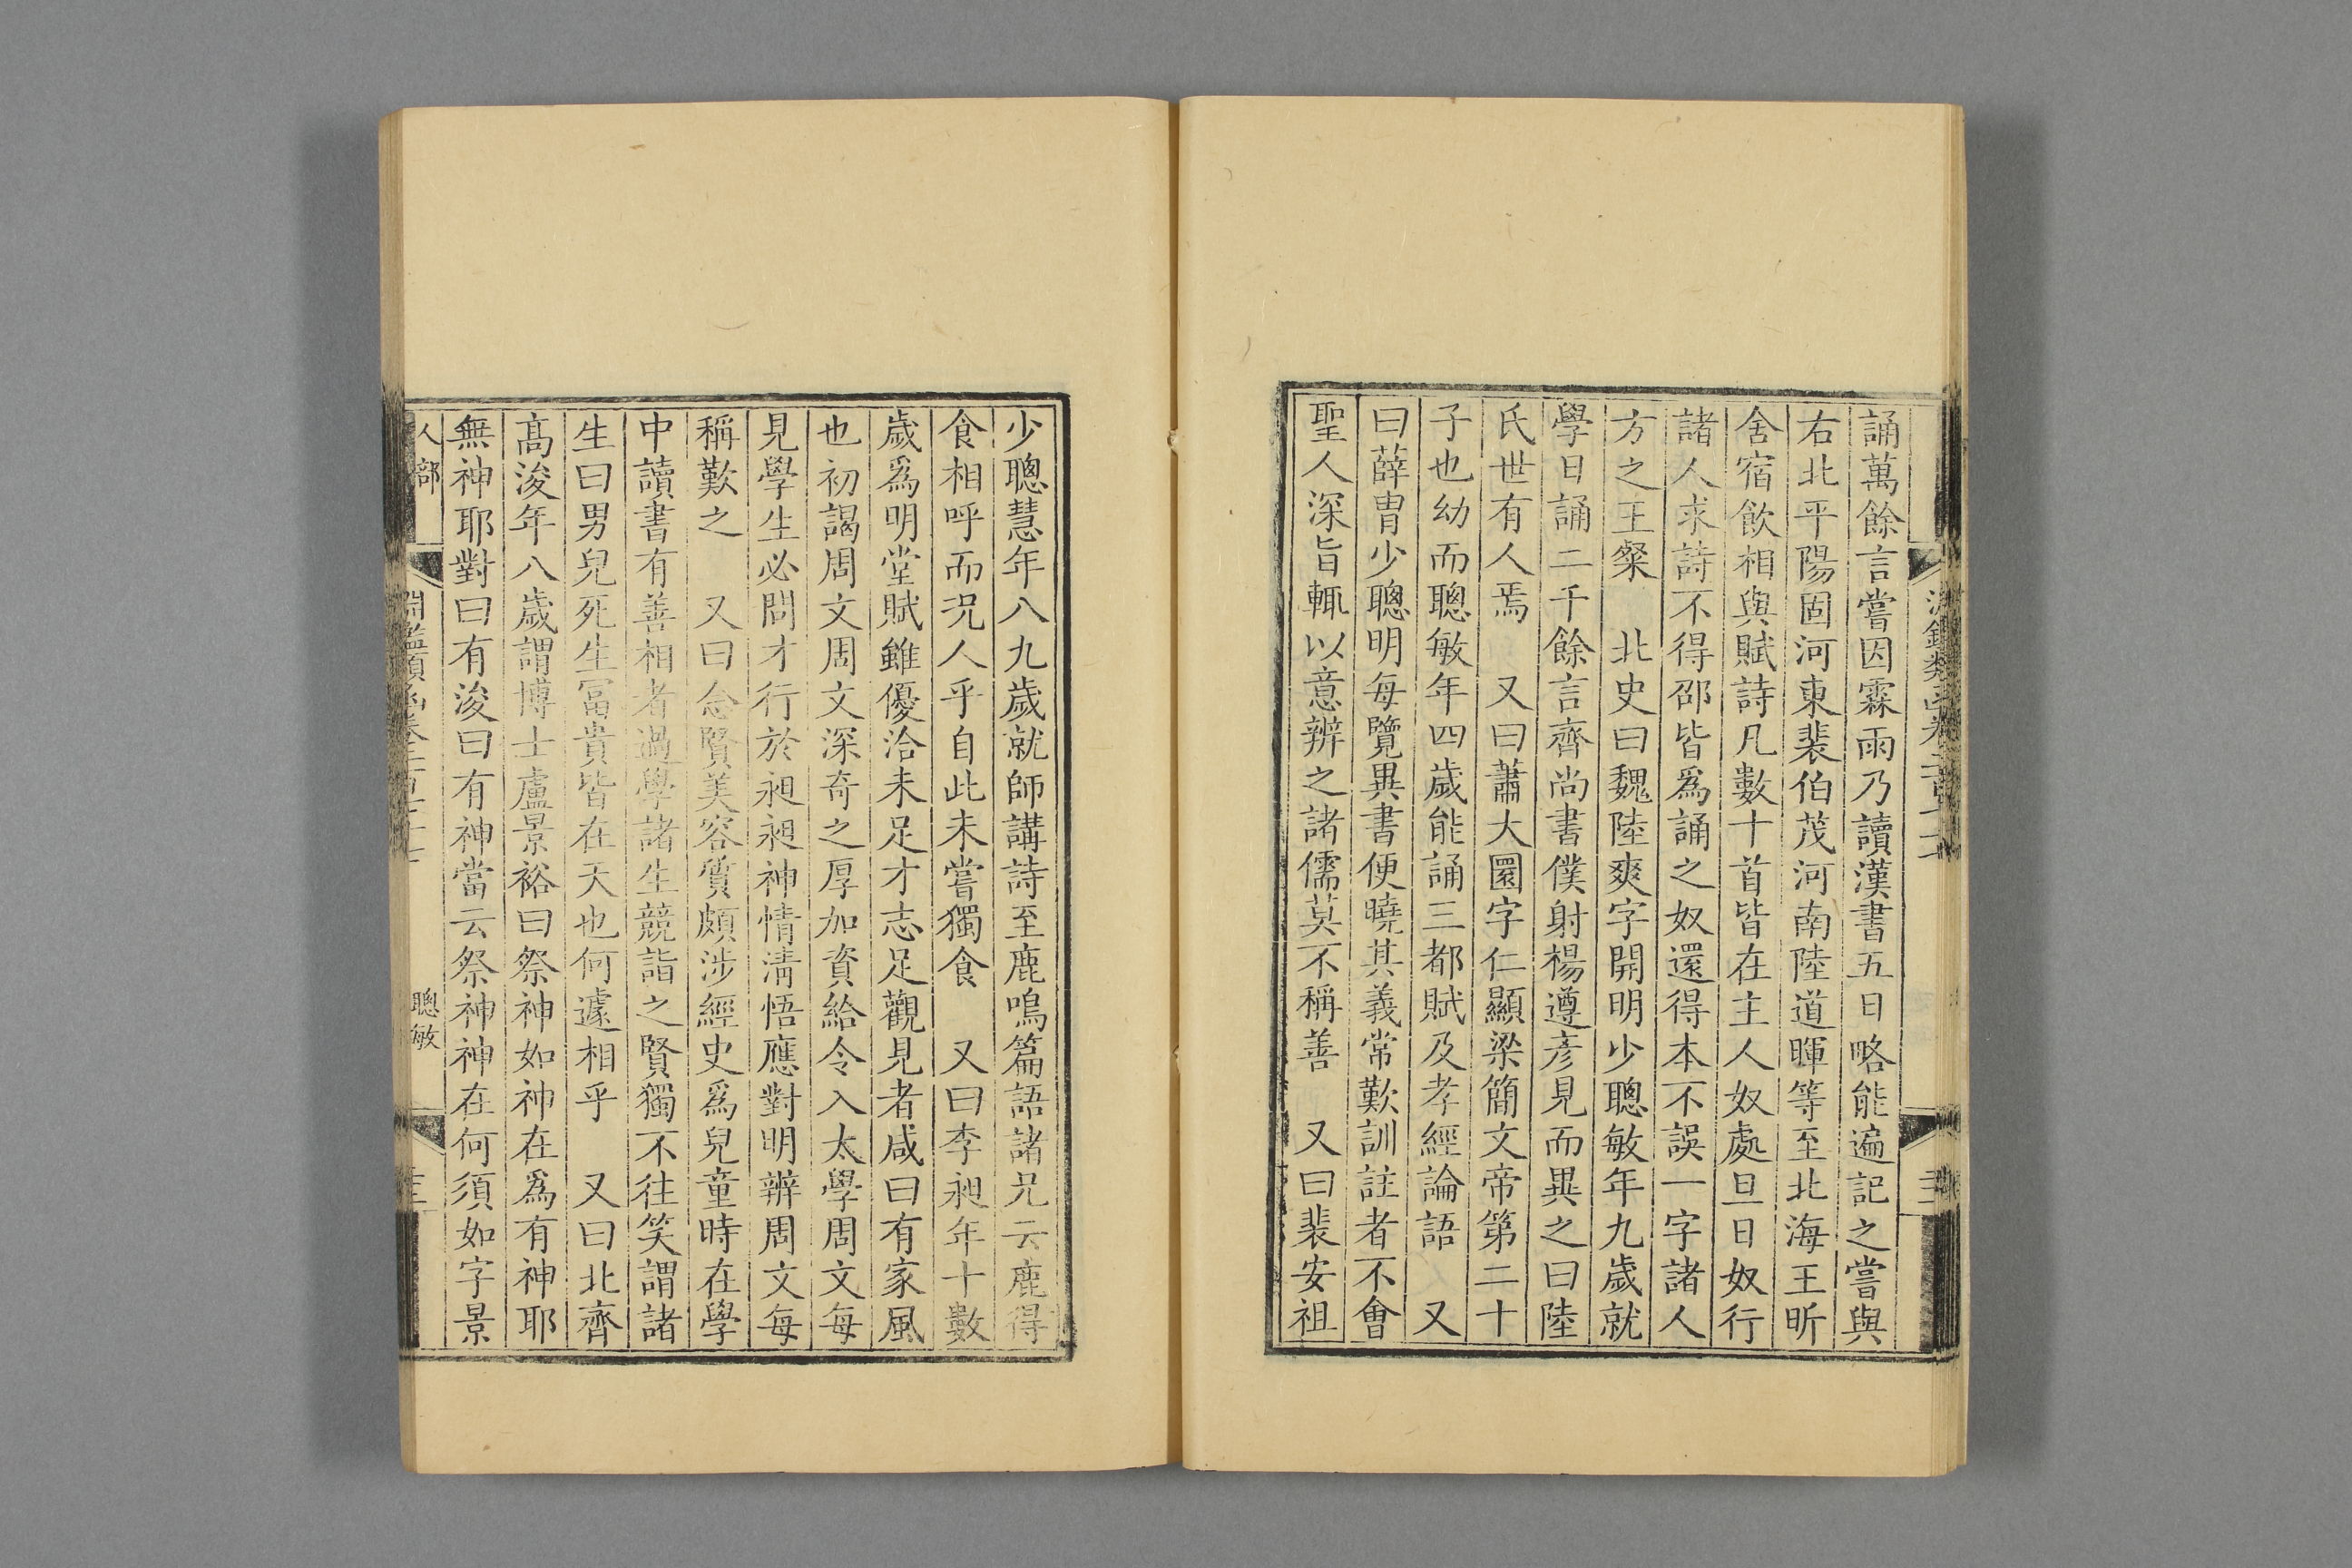 誦萬餘言嘗因霖雨乃讀漢書五日略能遍記之嘗與
右北平陽固河東裴伯茂河南陸道暉等至北海王昕
舍宿飲相與賦詩凡數十首皆在主人奴處旦日奴行
諸人求詩不得邵皆爲誦之奴還得本不誤一字諸人
方之王粲　北史曰魏陸爽字開明少聰敏年九歲就
學日誦二千餘言齊尚書僕射楊遵彥見而異之曰陸
氏世有人焉　又曰蕭大圜字仁顯梁簡文帝第二十
子也幼而聰敏年四歲能誦三都賦及孝經論語　又
曰薛胄少聰明每覽異書便曉其義常歎訓註者不會
聖人深旨輒以意辨之諸儒莫不稱善　又曰裴安祖
少聰慧年八九歲就師講詩至鹿鳴篇語諸兄云鹿得
食相呼而況人乎自此未嘗獨食　又曰李昶年十數
歲爲明堂賦雖優洽未足才志足觀見者咸曰有家風
也初謁周文周文深奇之厚加資給令入太學周文每
見學生必問才行於昶昶神情清悟應對明辨周文每
稱歎之　又曰念賢美容質頗涉經史爲兒童時在學
中讀書有善相者過學諸生競詣之賢獨不往笑謂諸
生曰男兒死生冨貴皆在天也何遽相乎　又曰北齊
高浚年八歲謂博士盧景裕曰祭神如神在爲有神耶
無神耶對曰有浚曰有神當云祭神神在何須如字景
人部
聰敏